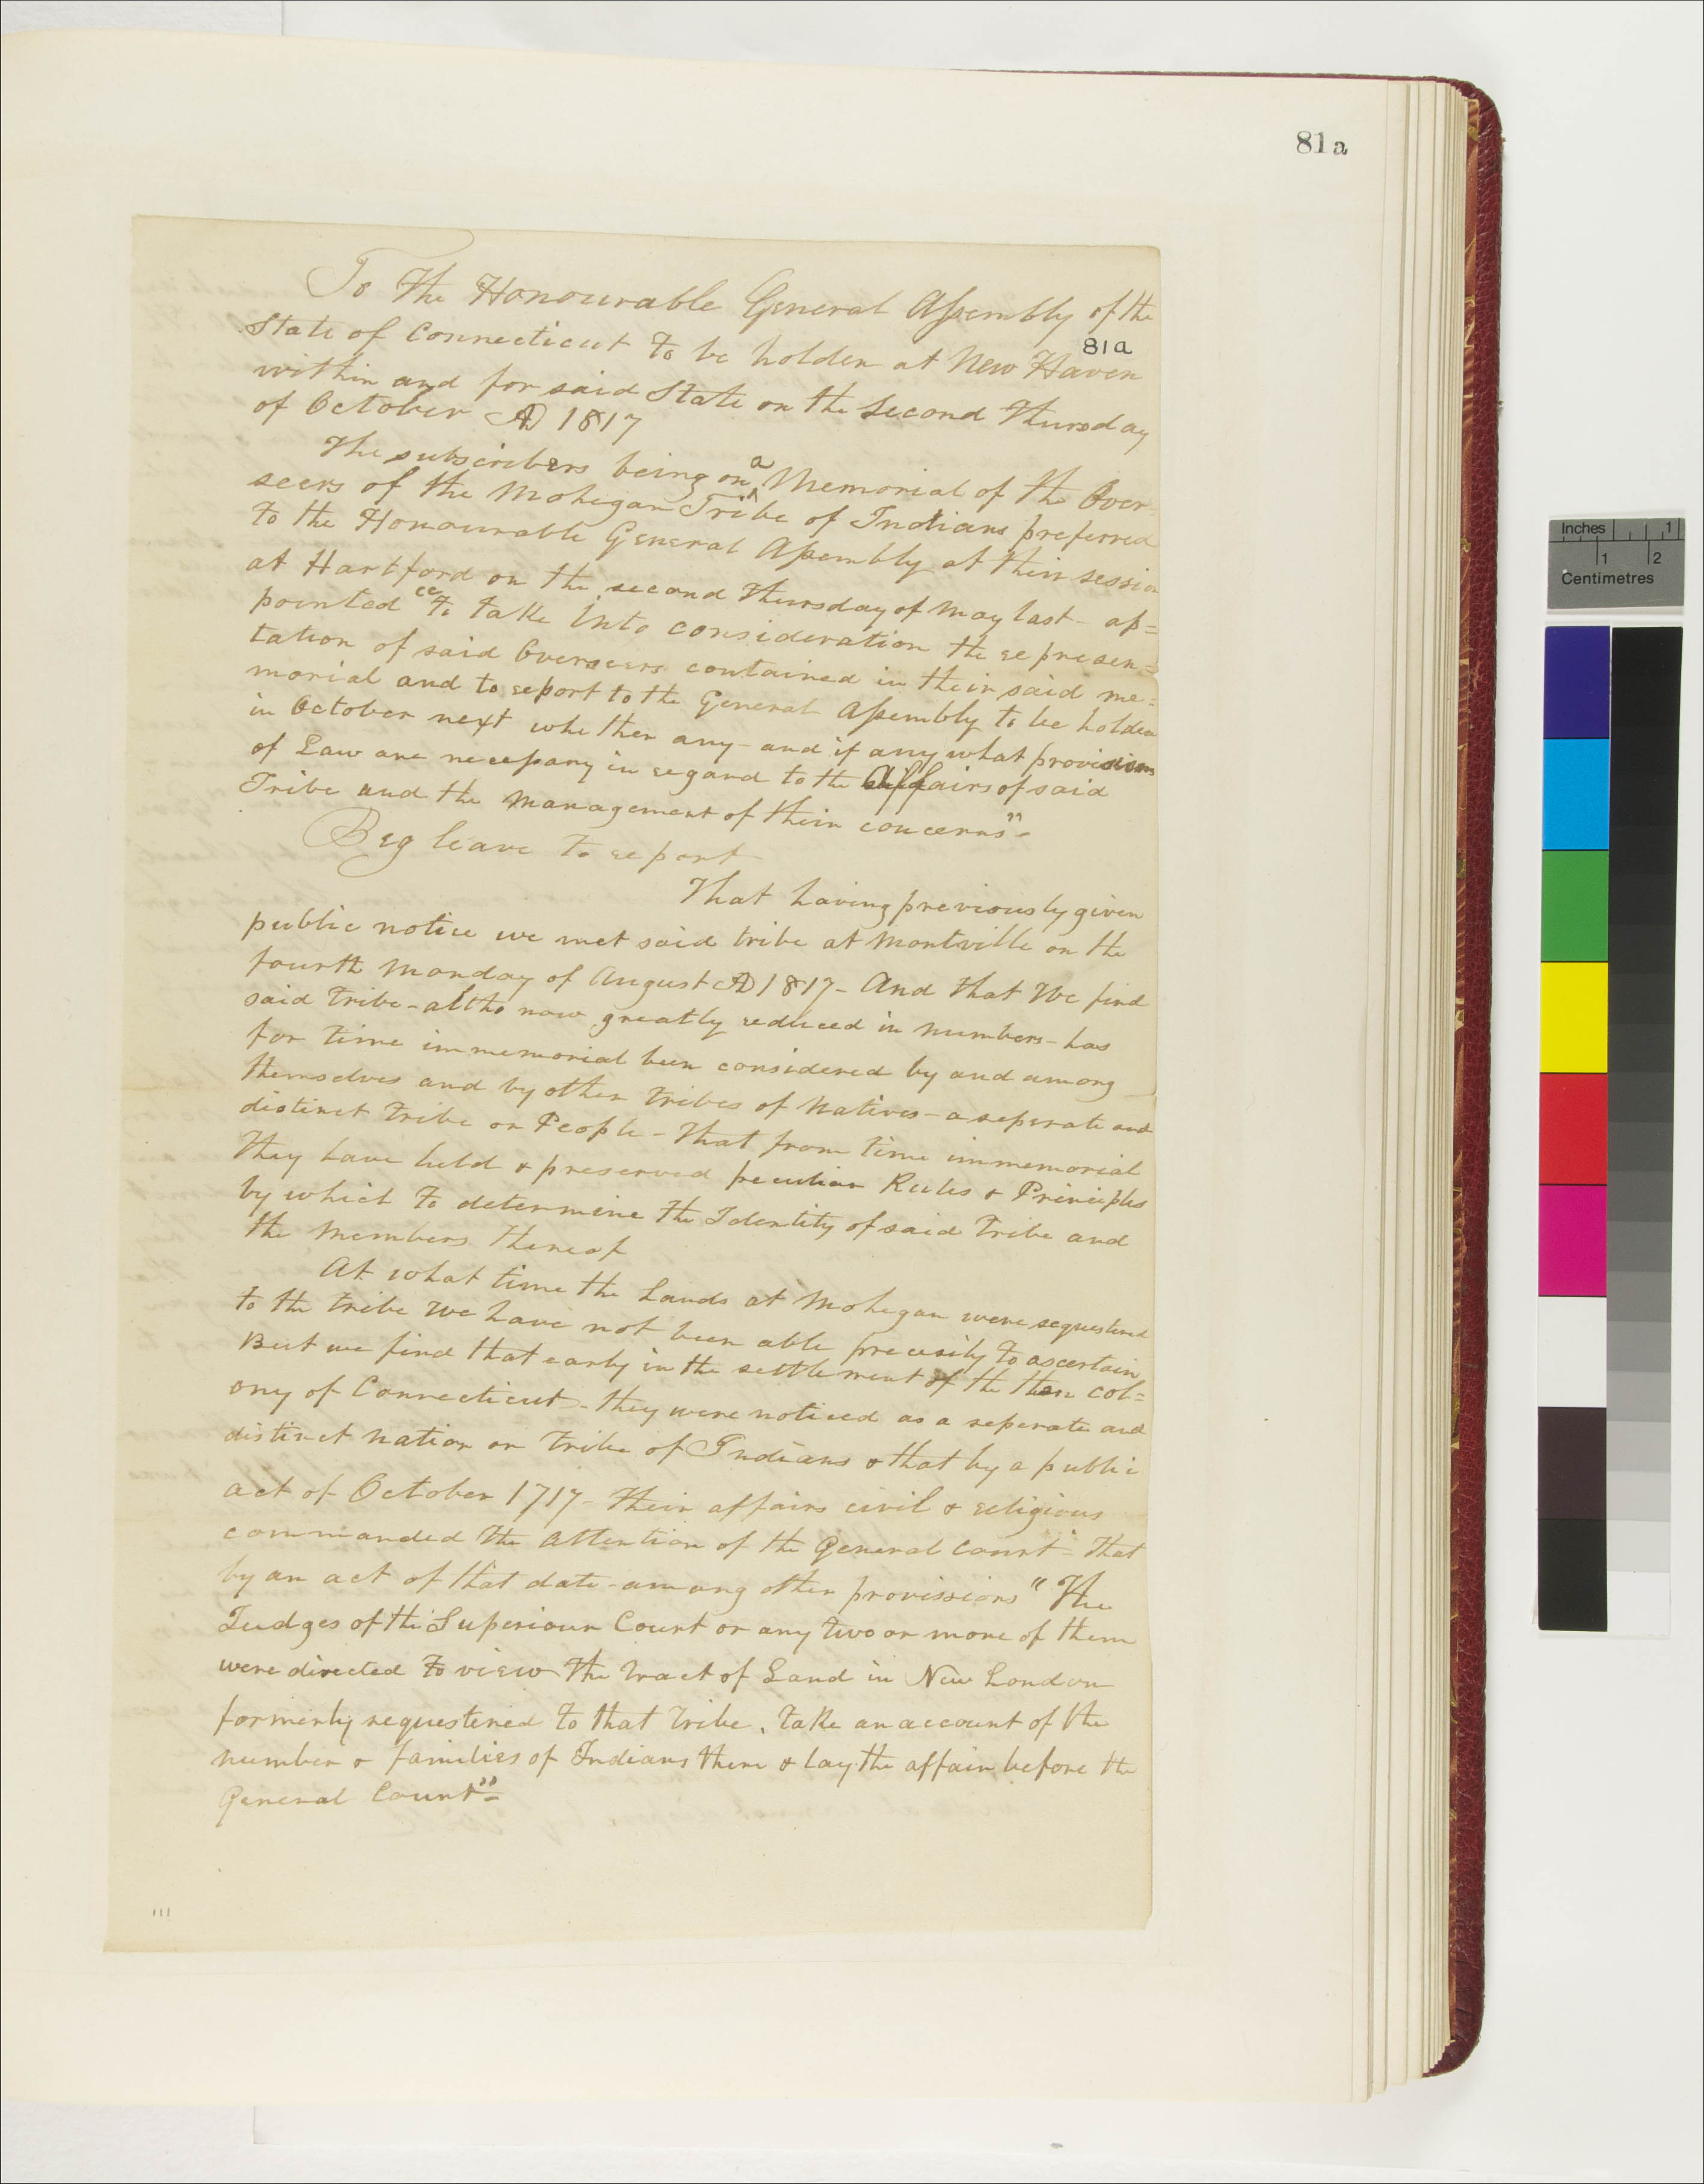 81a
To The Honourable General Assembly of the
81a
State of Connecticut to be holden at New Haven
within and for said State on the Second Thursday
of October AD 1817
The subscribers being on a Memorial of the Over
seers of the Mohegan Tribe of Indians preferred
to the Honourable General Assembly at their session
at Hartford on the second Thursday of May last - ap=
pointed "to take into consideration the represen=
tation of said Overseers contained in their said me=
morial and to report to the General Assembly to be holden
in October next whether any - and if any what provisions
of Law are necessary in regard to the Affairs of said
Tribe and the management of their concerns" -
Beg leave to report
That having previously given
public notice we met said tribe at Montville on the
fourth Monday of August AD 1817 - And that We find
said Tribe - altho now greatly reduced in numbers - has
for time immemorial been considered by and among
themselves and by other tribes of Natives - a seperate and
distinct Tribe or People - That from time immemorial
They have held & preserved peculiar Rules & Principles
by which to determine the Identity of said Tribe and
the Members thereof
At what time the Lands at Mohegan were sequestered
to the tribe We have not been able precisily to ascertain
But we find that early in the settlement of the then col=
ony of Connecticut - they were noticed as a seperate and
distinct nation or tribe of Indians & that by a public
act of October 1717 - Their affairs civil & religious
commanded the attention of the General Court - That
by an act of that date - among other provissions "The
Judges of the Superiour Court or any two or more of them
were directed to view the tract of Land in New London
formerly sequestered to that tribe, take an account of the
number & families of Indians there & lay the affair before the
General Court" -